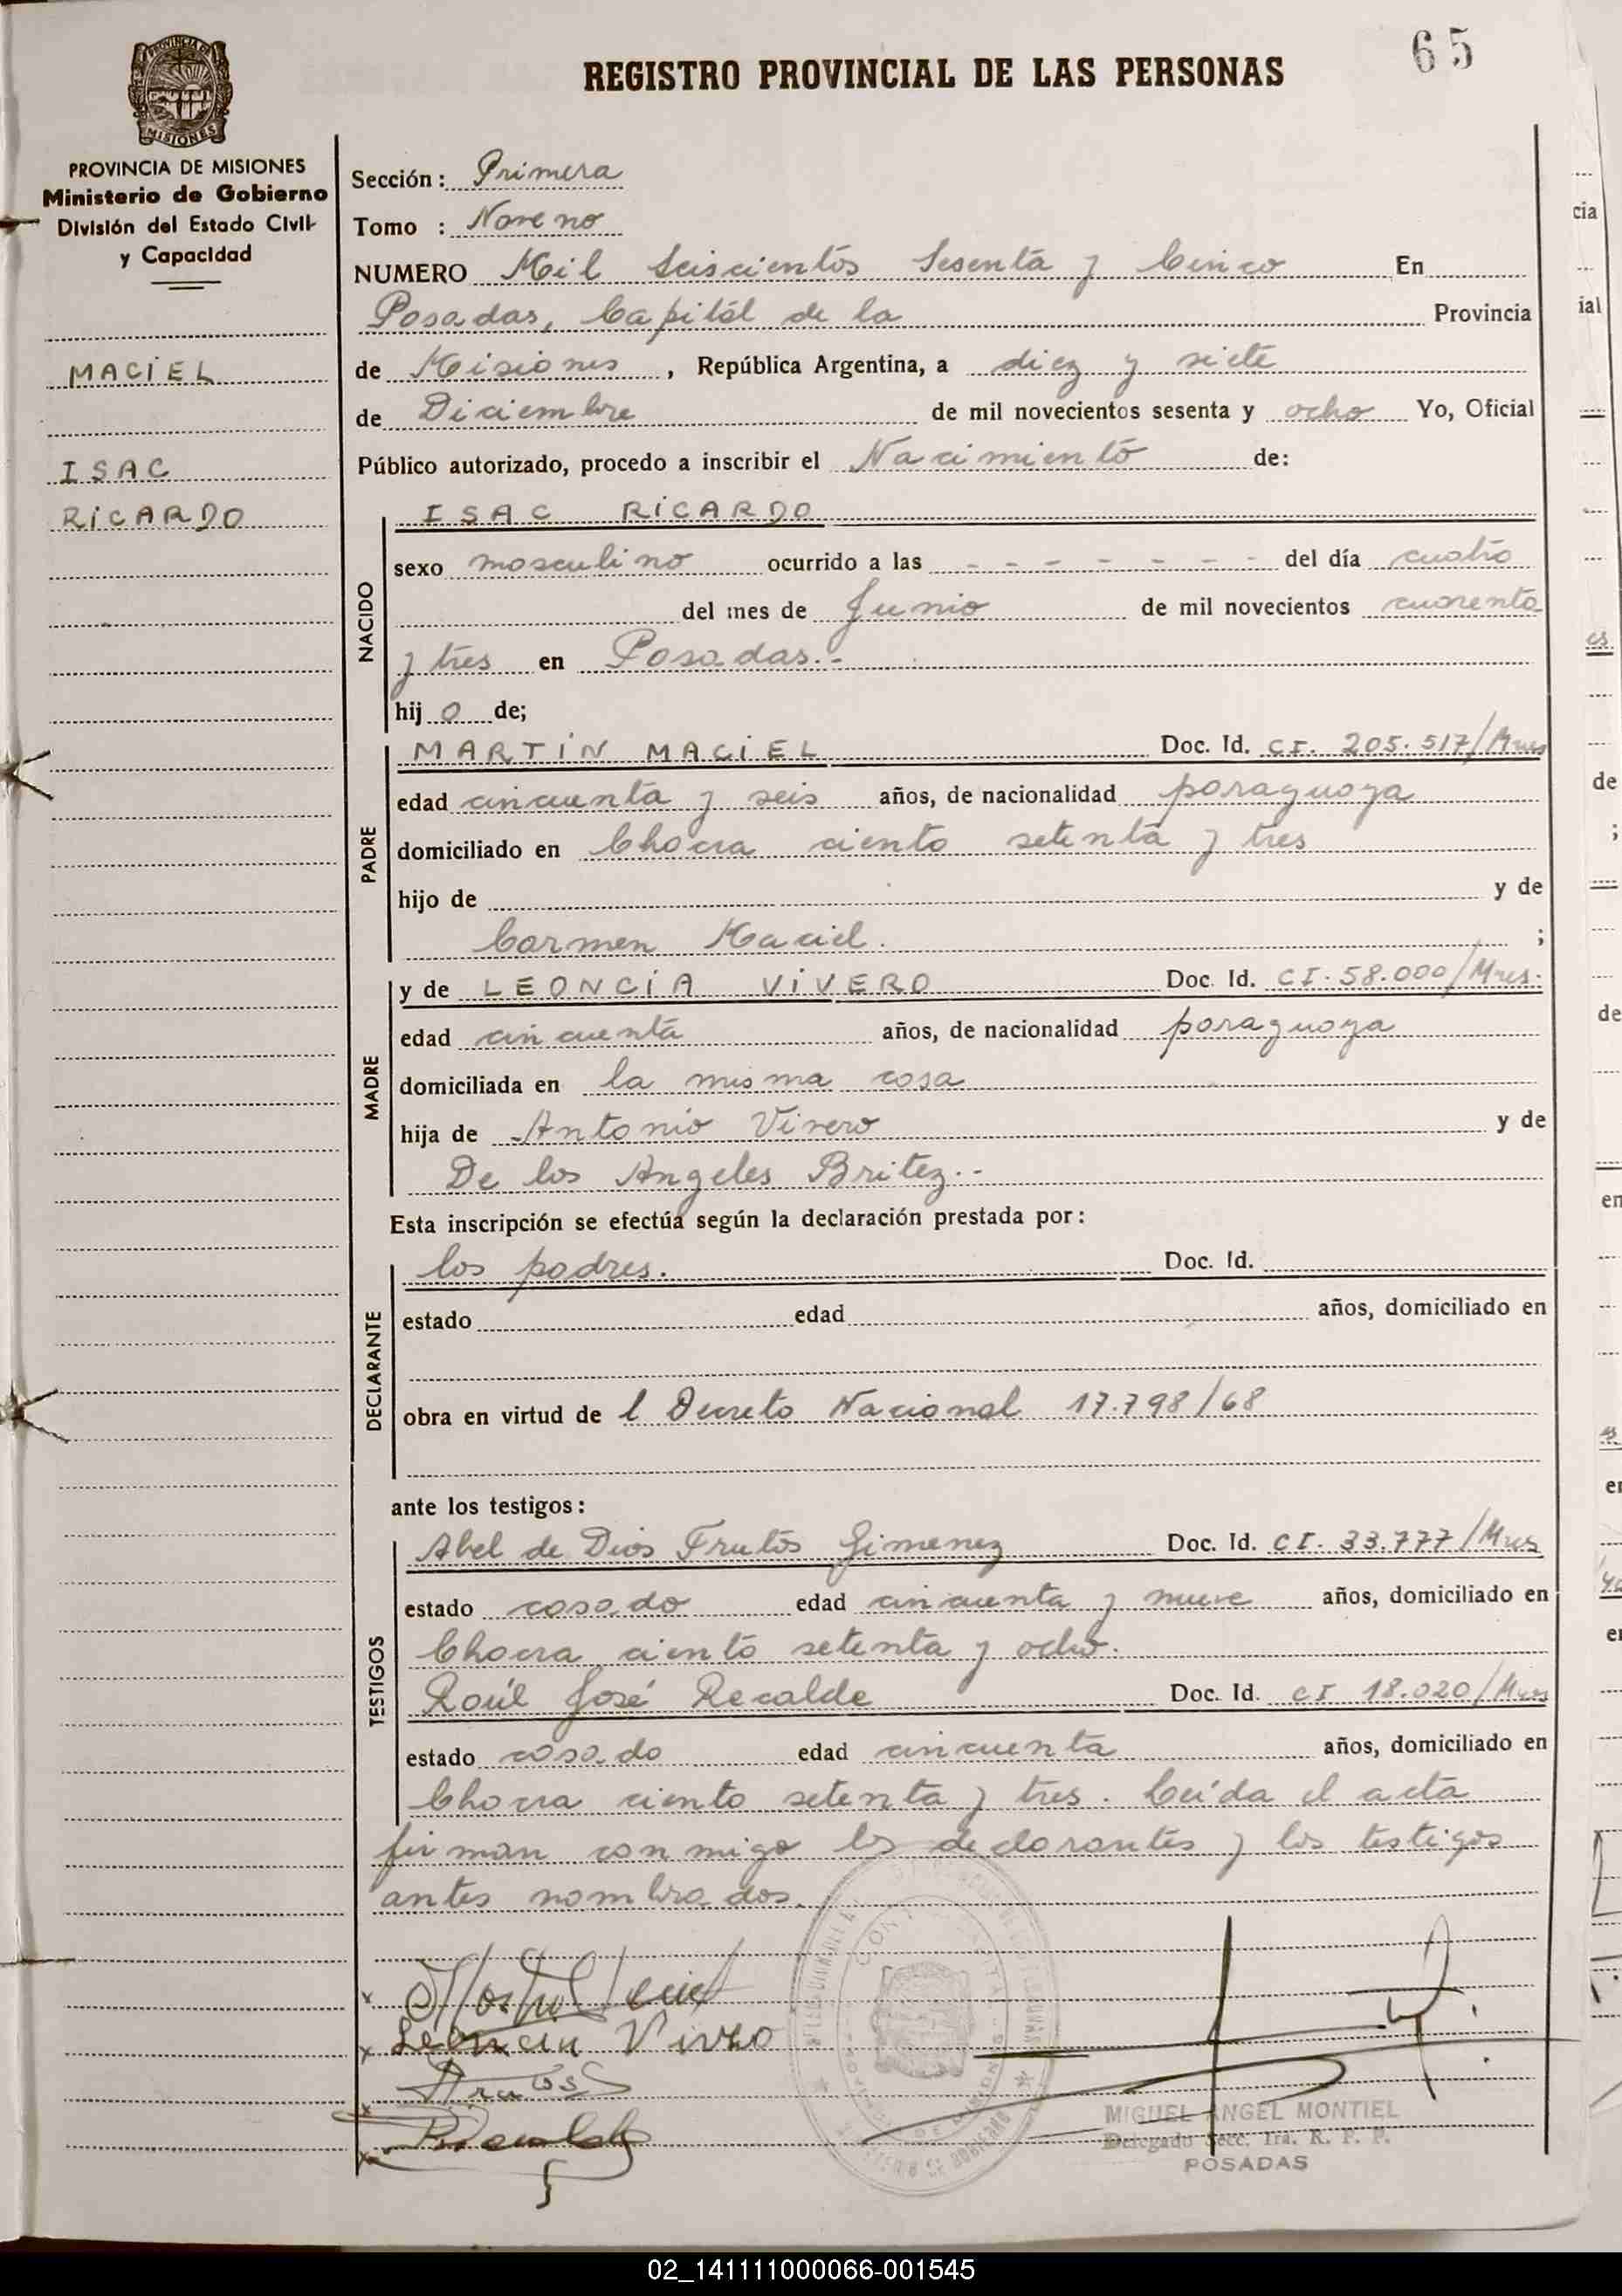 65
REGISTRO PROVINCIAL DE LAS PERSONAS
MISIONES
PROVINCIA DE MISIONES
Ministerio de Gobierno
División del Estado Civil
y Capacidad
MACIEL
ISAC
RICARDO
Sección: Primera
Tomo : Noveno
NUMERO Mil Seiscientos Sesenta y Cinco En
Posadas, Capitál de la Provincia
de Misiones , República Argentina, a diez y siete
de Diciembre de mil novecientos sesenta y ocho Yo, Oficial
Público autorizado, procedo a inscribir el Nacimiento de:
NACIDO
ISAC RICARDO
sexo masculino ocurrido a las - - - - - - - del día cuatro
del mes de Junio de mil novecientos cuarenta
y tres en Posadas.-
hij o de;
PADRE
MARTIN MACIEL Doc. Id. CI. 205.517/Mnes
edad cincuenta y seis años, de nacionalidad paraguaya
domiciliado en Chacra ciento setenta y tres
hijo de y de
Carmen Maciel. ;
MADRE
y de LEONCIA VIVERO Doc. Id. CI. 58.000/Mnes.
edad cincuenta años, de nacionalidad paraguaya
domiciliada en la misma casa
hija de Antonio Vivero y de
De los Angeles Britez.-
Esta inscripción se efectúa según la declaración prestada por:
DECLARANTE
los padres. Doc. Id.
estado edad años, domiciliado en
obra en virtud de l Decreto Nacional 17.798/68
ante los testigos:
TESTIGOS
Abel de Dios Frutos Gimenez Doc. Id. CI. 33.777/Mnes
estado casado edad cincuenta y nueve años, domiciliado en
Chacra ciento setenta y ocho.
Raúl José Recalde Doc. Id. CI 18.020/Mnes
estado casado edad cincuenta años, domiciliado en
Chacra ciento setenta y tres. Leída el acta
firman conmigo los declarantes y los testigos
antes nombrados.
Leoncia Vivero
MIGUEL ANGEL MONTIEL
Delegado Secc. 1ra. R. P. P.
POSADAS
02_141111000066-001545